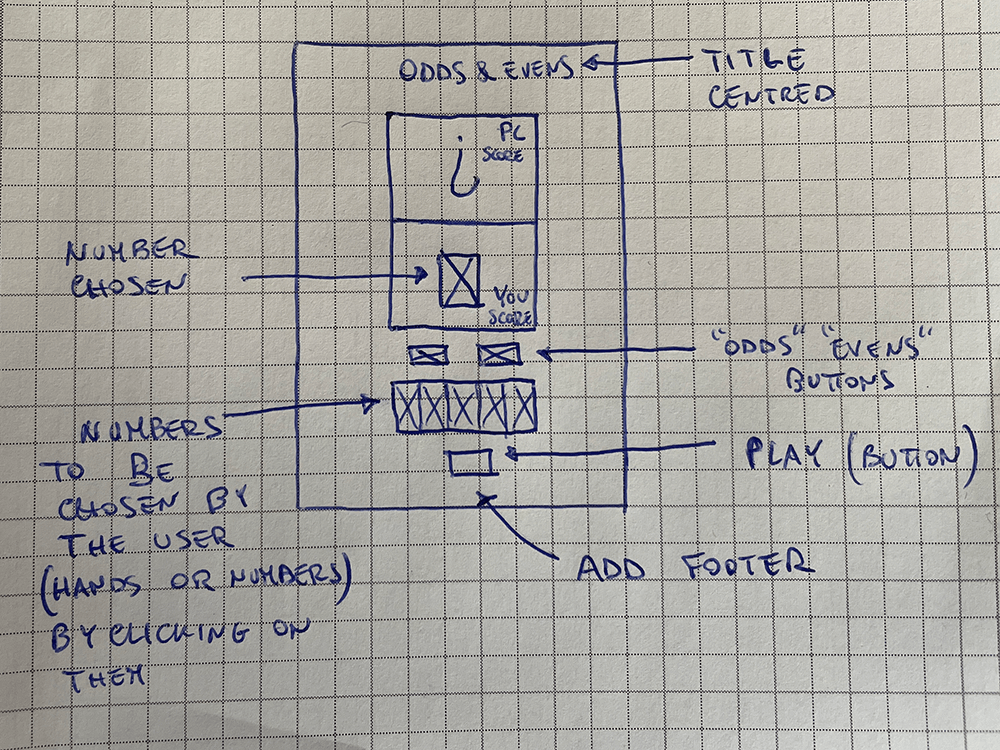 ODDS & EVENS
TITLE
CENTRED
PC
SCORE
¿
NUMBER
CHOSEN
YOU
SCORE
"ODDS" "EVENS"
BUTTONS
NUMBERS
TO BE
CHOSEN BY
THE USER
(HANDS OR NUMBERS)
BY CLICKING ON
THEM
PLAY (BUTTON)
ADD FOOTER